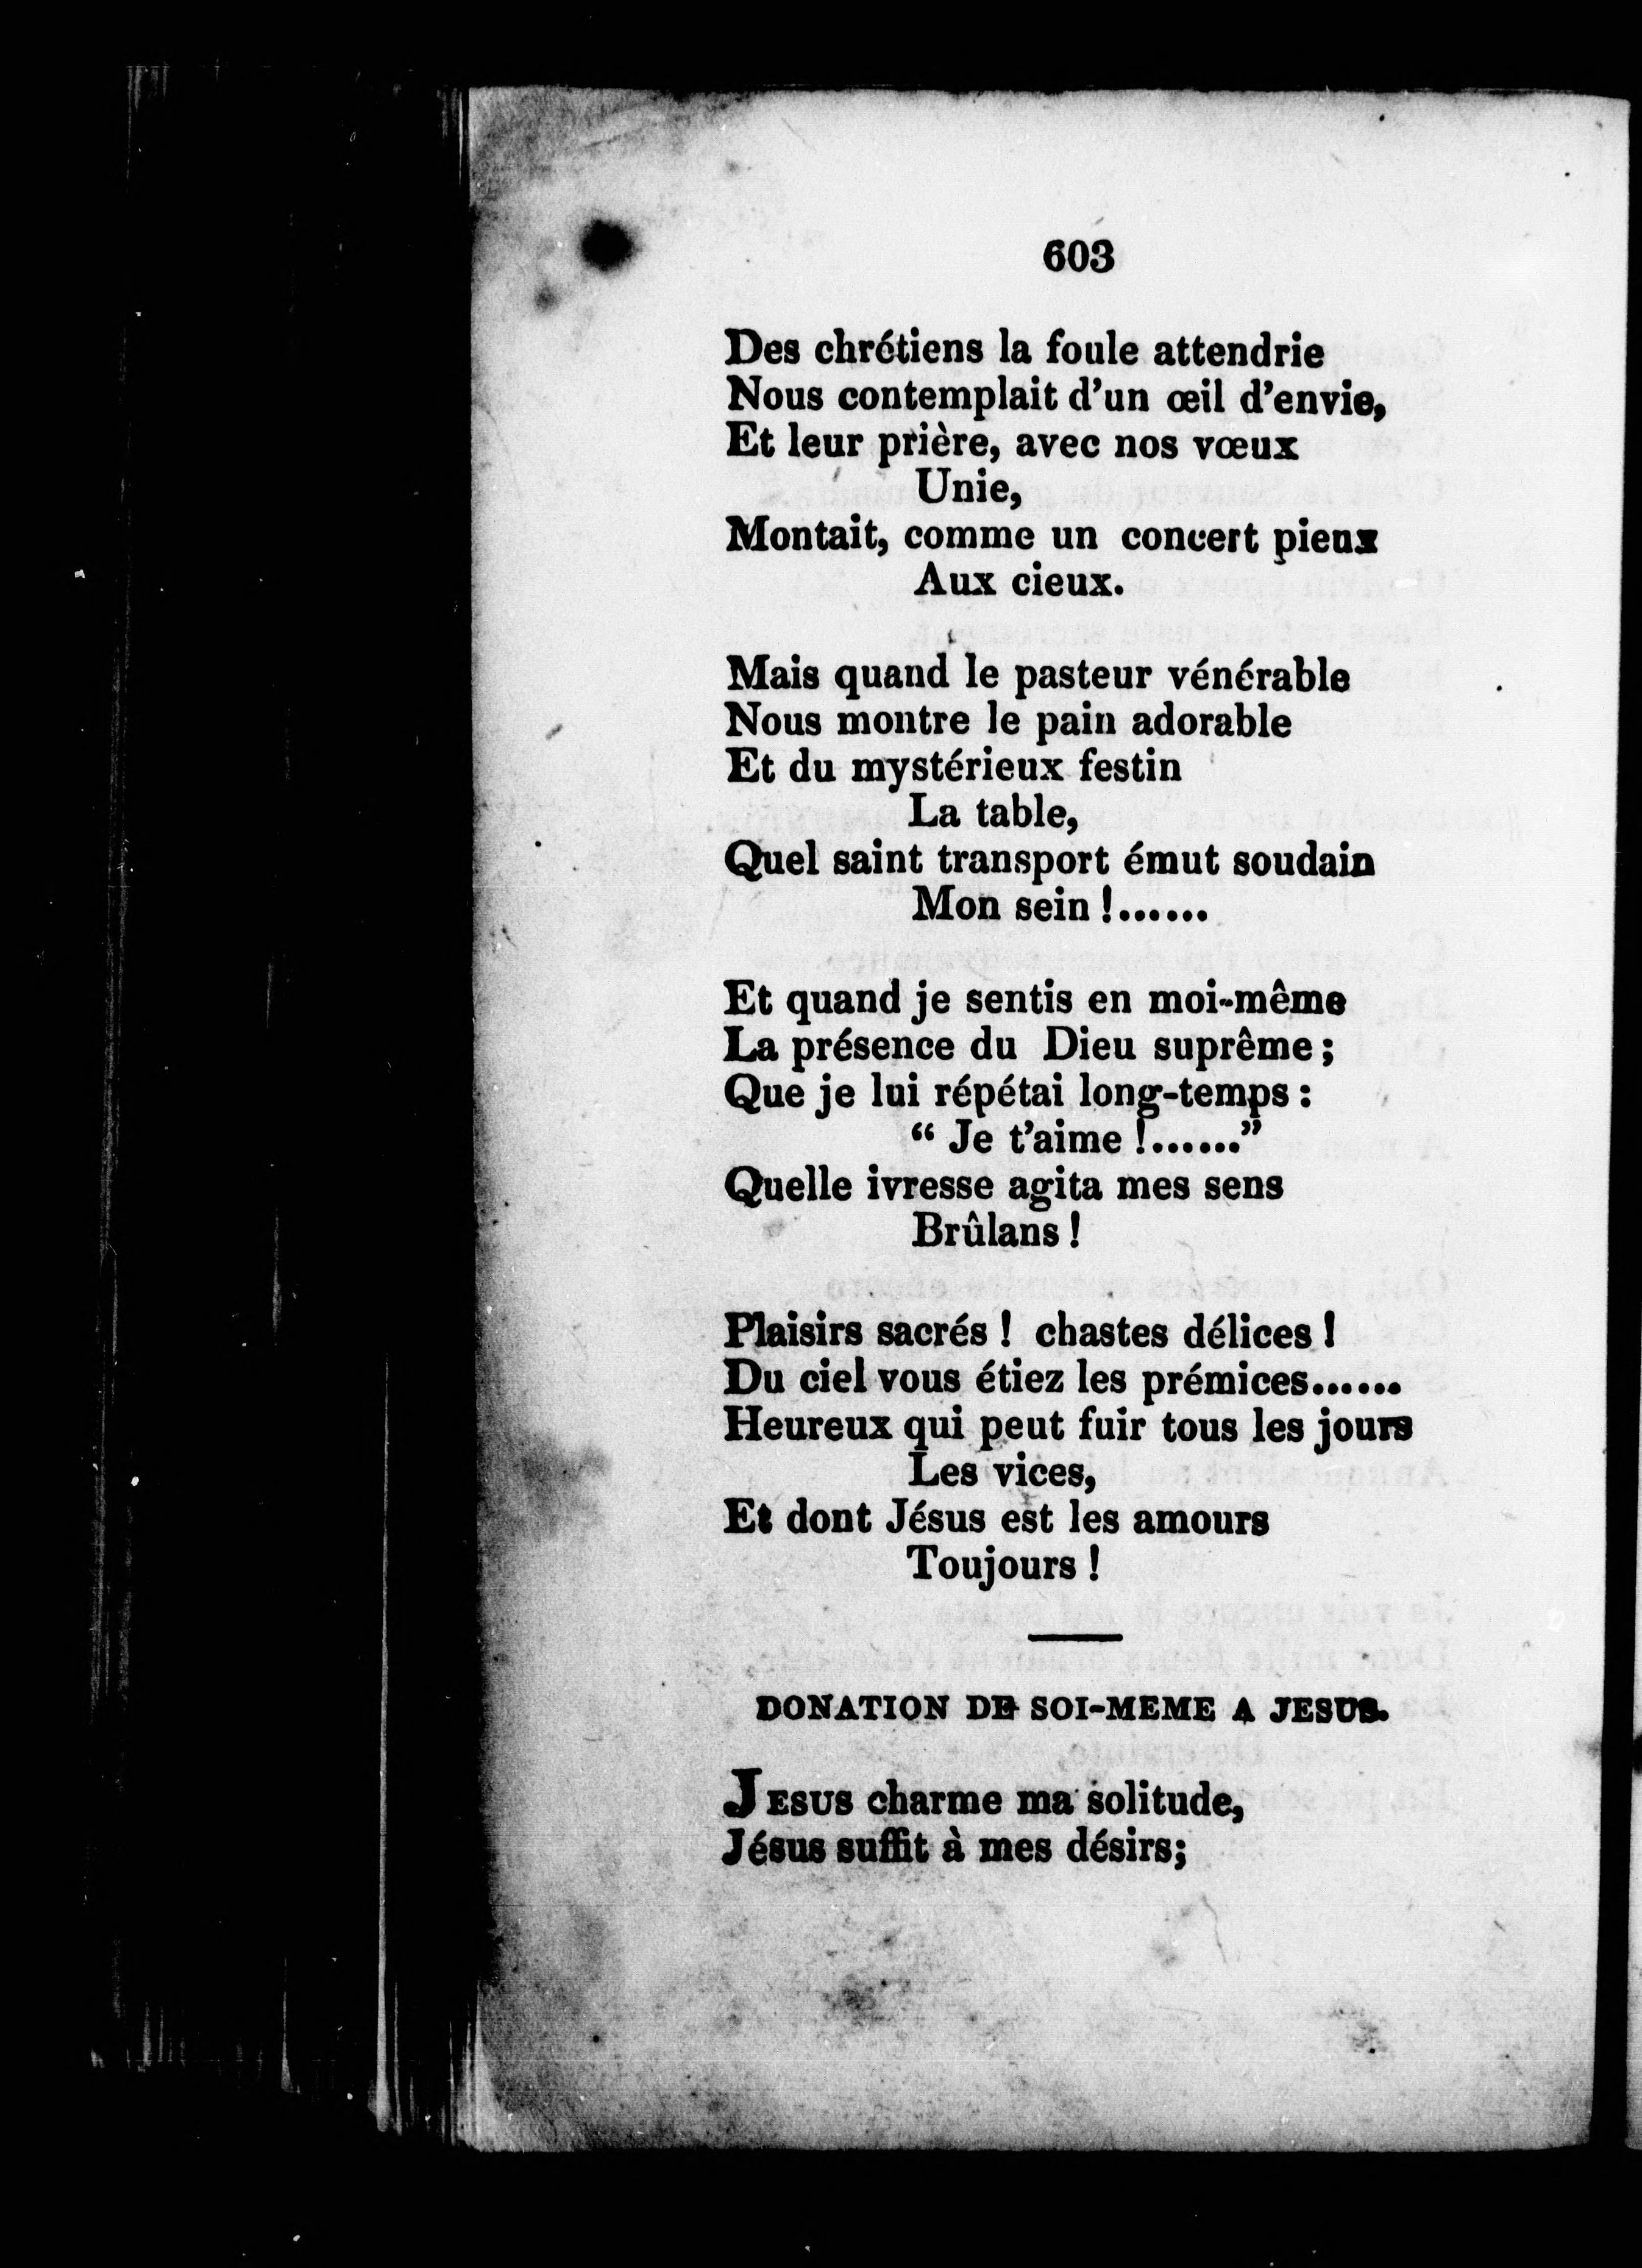 603
Des chrétiens la foule attendrie
Nous contemplait d'un œil d'envie,
Et leur prière, avec nos vœux
Unie,
Montait, comme un concert pieux
Aux cieux.
Mais quand le pasteur vénérable
Nous montre le pain adorable
Et du mystérieux festin
La table,
Quel saint transport émut soudain
Mon sein !......
Et quand je sentis en moi-même
La présence du Dieu suprême ;
Que je lui répétai long-temps :
“ Je t'aime !......”
Quelle ivresse agita mes sens
Brûlans !
Plaisirs sacrés ! chastes délices !
Du ciel vous étiez les prémices......
Heureux qui peut fuir tous les jours
Les vices,
Et dont Jésus est les amours
Toujours !
DONATION DE SOI-MEME A JESUS.
JESUS charme ma solitude,
Jésus suffit à mes désirs;